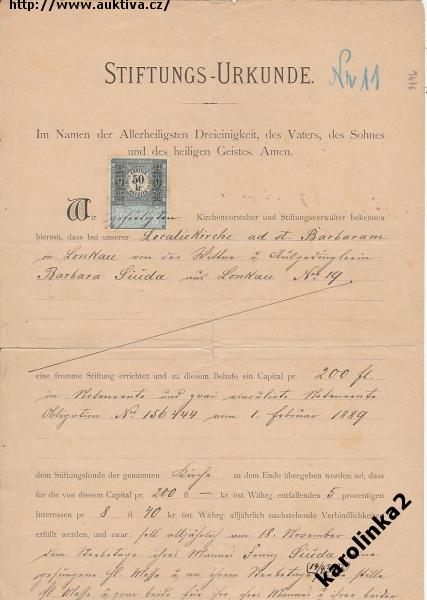 http://www.auktiva.cz/
STIFTUNGS-URKUNDE.
Nr 11
Im Namen der Allerheiligsten Dreieinigkeit, des Vaters, des Sohnes
und des heiligen Geistes. Amen.
50
kr
Wir gefertigten Kirchenvorsteher und Stiftungsverwalter bekennen
hiermit, dass bei unserer Localiekirche ad st. Barbaram
in Lonkau von der Wittwe u. Ausgedingerin
Barbara Siuda aus Lonkau No 19
eine fromme Stiftung errichtet und zu diesem Behufe ein Capital pr. 200 fl.
in Notenrente und zwar vinculirte Notenrente
Obligation No 156444 vom 1. Februar 1889
dem Stiftungsfonde der genannten Kirche zu dem Ende übergeben worden sei, dass
für die von diesem Capital pr. 200 fl — kr öst. Währg. entfallenden 5 procentigen
Interessen pr 8 fl 40 kr. öst. Währg. alljährlich nachstehende Verbindlichkeiten
erfüllt werden, und zwar: soll alljährlich am 18. November
dem Sterbetage ihres Mannes Franz Siuda eine
gesungene hl. Messe u. an ihrem Sterbetage stille
hl. Messe u. zwar beide für sie ihres Mannes u. ihre beider
karolinka2